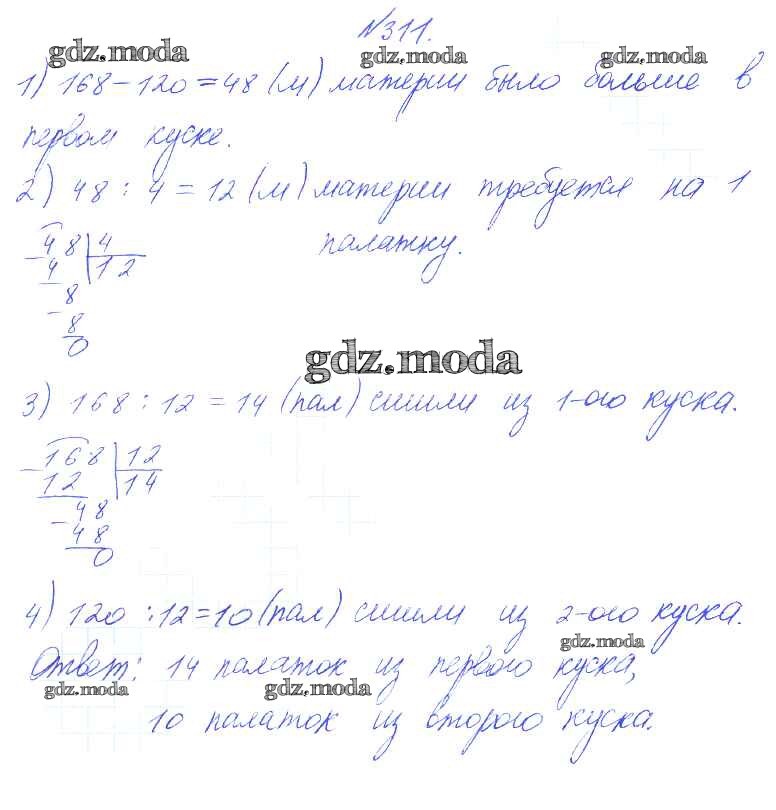 №311.
gdz.moda gdz.moda gdz.moda
1) 168-120=48 (м) материи было больше в
первом куске.
2) 48 : 4 = 12 (м) материи требуется на 1
палатку.
48 4
4 12
8
8
0
gdz.moda
3) 168 : 12 = 14 (пал) сшили из 1-ого куска.
168 12
12 14
48
48
0
4) 120 :12=10 (пал) сшили из 2-ого куска.
gdz.moda
Ответ: 14 палаток из первого куска,
gdz.moda gdz.moda
10 палаток из второго куска.